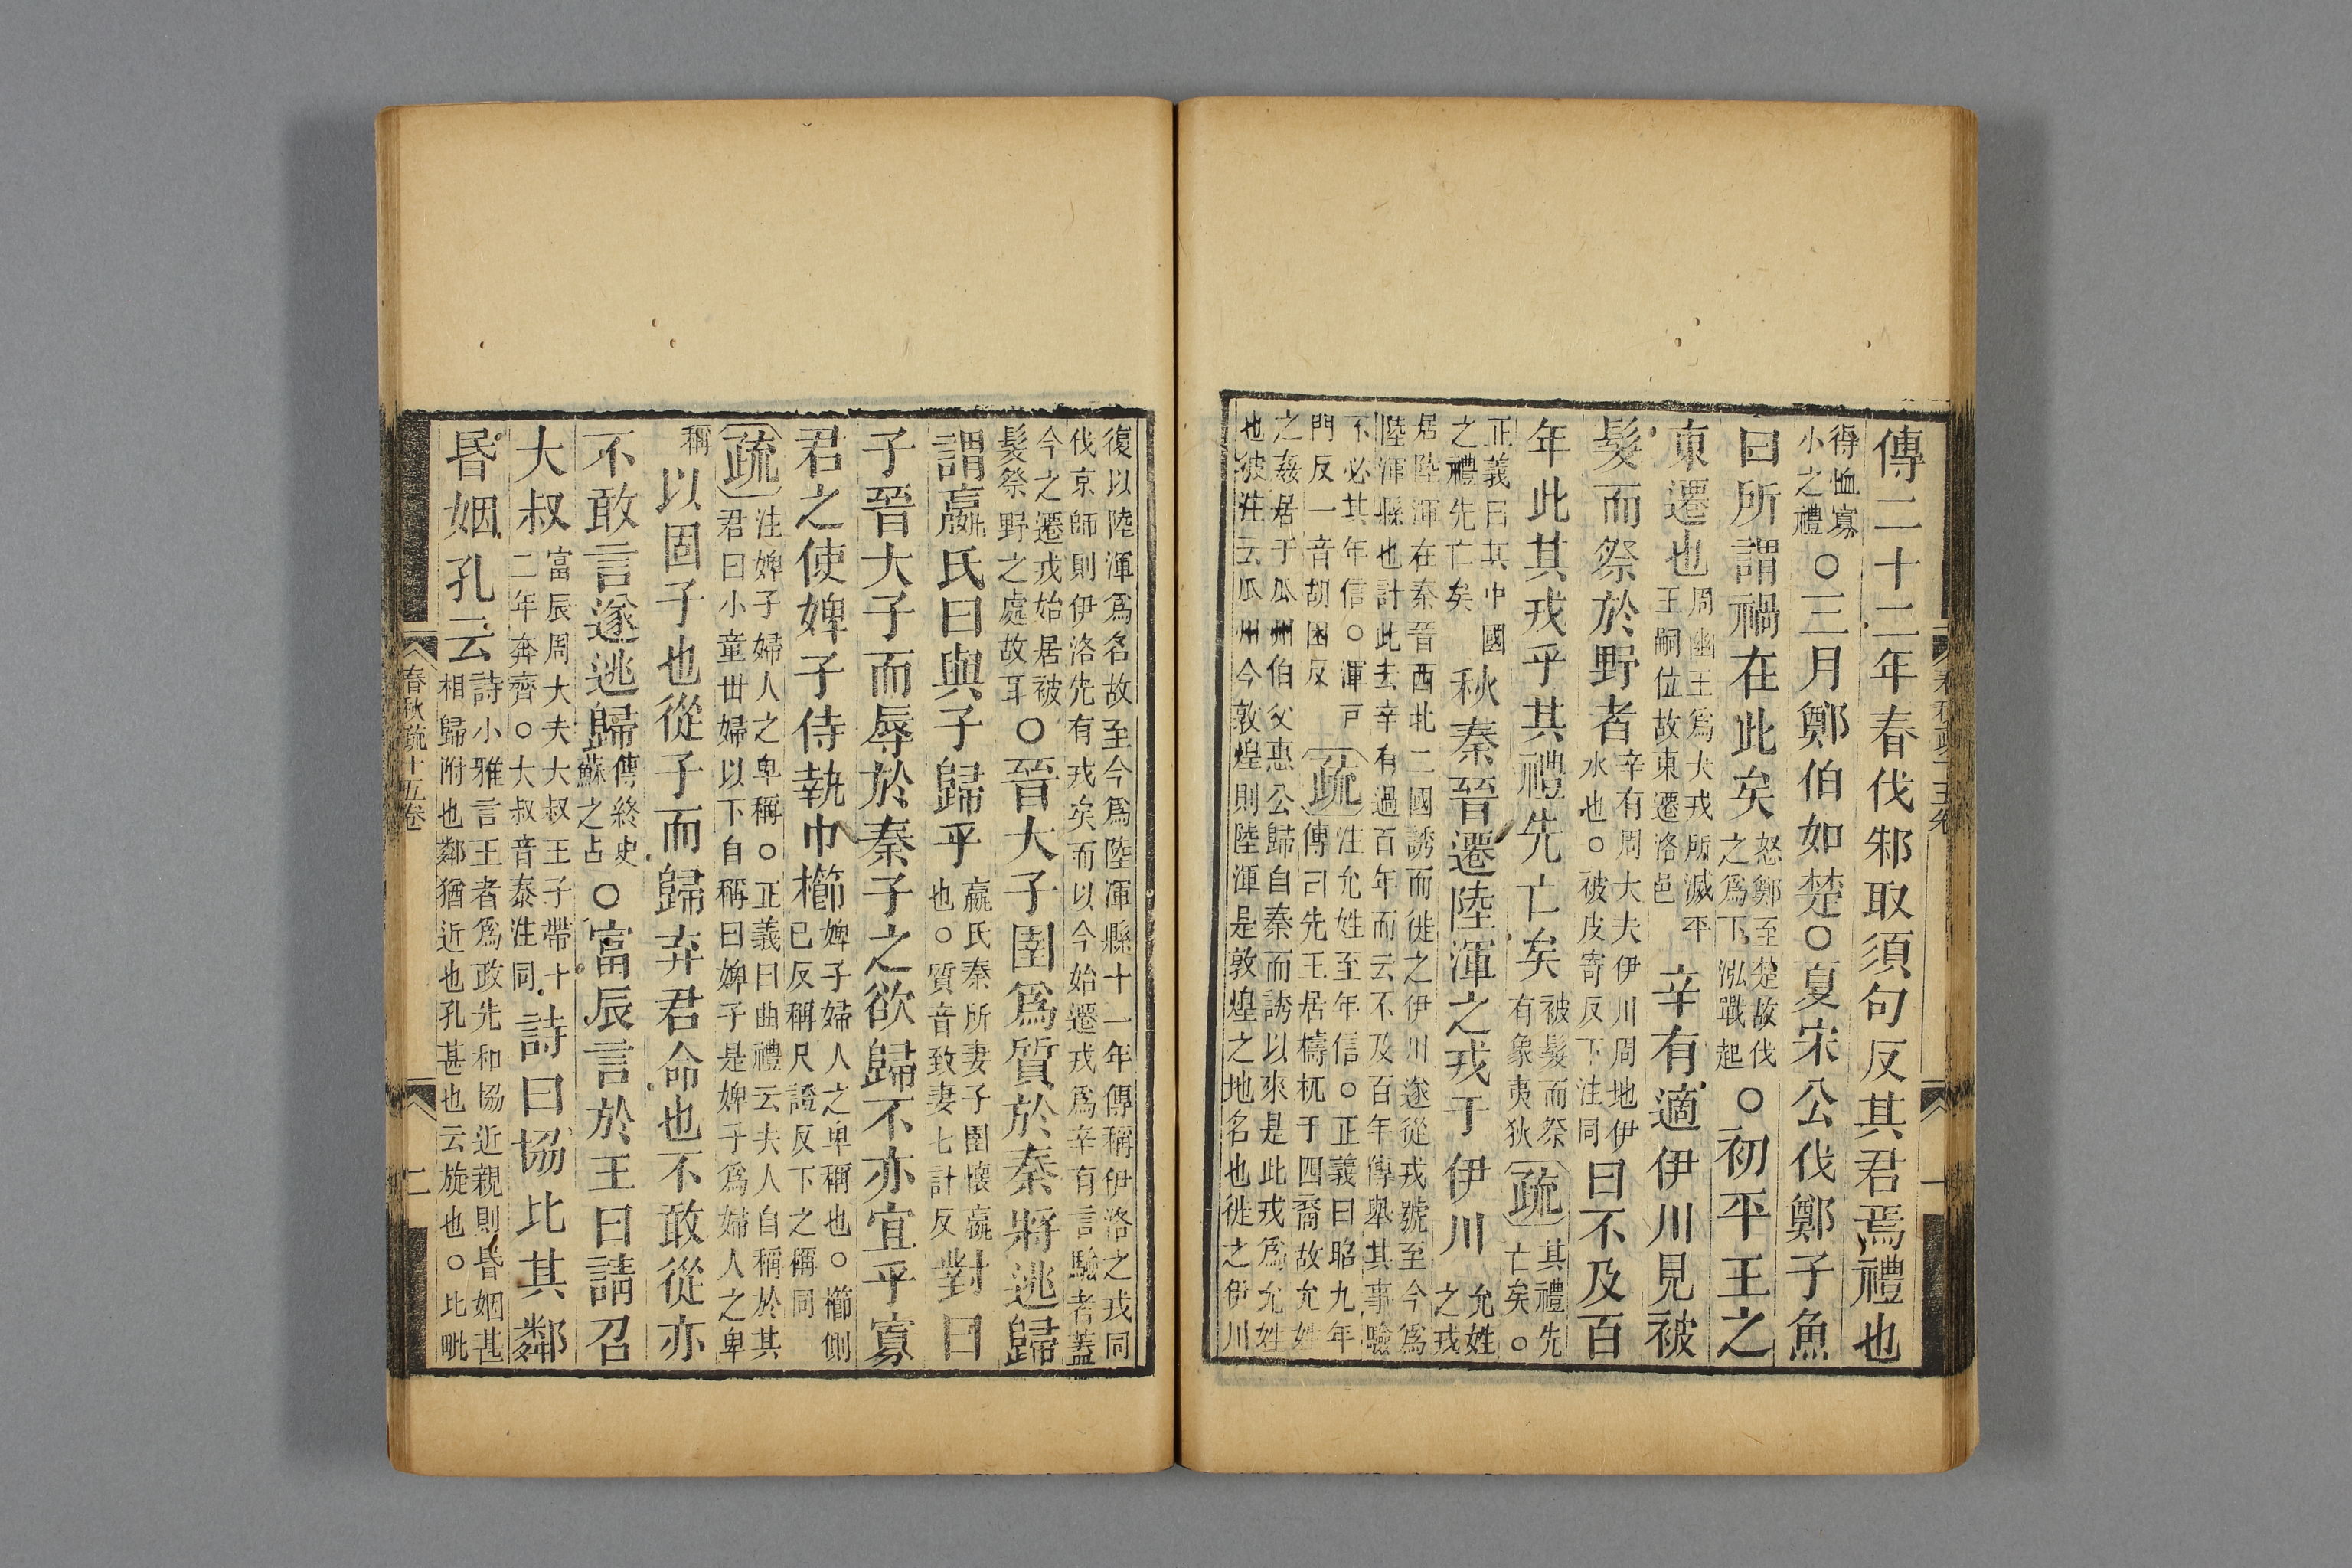 傳二十二年春伐邾取須句反其君焉禮也
得恤寡
小之禮
○三月鄭伯如楚○夏宋公伐鄭子魚
曰所謂禍在此矣
怒鄭至楚故伐
之爲下泓戰起
○初平王之
東遷也
周幽王爲犬戎所滅平
王嗣位故東遷洛邑
辛有適伊川見被
髮而祭於野者
辛有周大夫伊川周地伊
水也○被皮寄反下注同
曰不及百
年此其戎乎其禮先亡矣
被髮而祭
有象夷狄
疏
其禮先
亡矣○
正義曰其中國
之禮先亡矣
秋秦晉遷陸渾之戎于伊川
允姓
之戎
居陸渾在秦晉西北二國誘而徙之伊川遂從戎號至今爲
陸渾縣也計此去辛有過百年而云不及百年傳舉其事驗
不必其年信○渾戶
門反一音胡困反
疏
注允姓至年信○正義曰昭九年
傳曰先王居檮杌于四裔故允姓
之姦居于瓜州伯父惠公歸自秦而誘以來是此戎爲允姓
也彼注云瓜州今敦煌則陸渾是敦煌之地名也徙之伊川
復以陸渾爲名故至今爲陸渾縣十一年傳稱伊洛之戎同
伐京師則伊洛先有戎矣而以今始遷戎爲辛有言驗者蓋
今之遷戎始居被
髮祭野之處故耳
○晉大子圉爲質於秦將逃歸
謂嬴氏曰與子歸乎
嬴氏秦所妻子圉懷嬴
也○質音致妻七計反
對曰
子晉大子而辱於秦子之欲歸不亦宜乎寡
君之使婢子侍執巾櫛
婢子婦人之卑稱也○櫛側
已反稱尺證反下之稱同
疏
注婢子婦人之卑稱○正義曰曲禮云夫人自稱於其
君曰小童世婦以下自稱曰婢子是婢子爲婦人之卑
稱
以固子也從子而歸弃君命也不敢從亦
不敢言遂逃歸
傳終史
蘇之占
○富辰言於王曰請召
大叔
富辰周大夫大叔王子帶十
二年奔齊○大叔音泰注同
詩曰協比其鄰
昏姻孔云
詩小雅言王者爲政先和協近親則昏姻甚
相歸附也鄰猶近也孔甚也云旋也○比毗
春秋疏十五卷
二